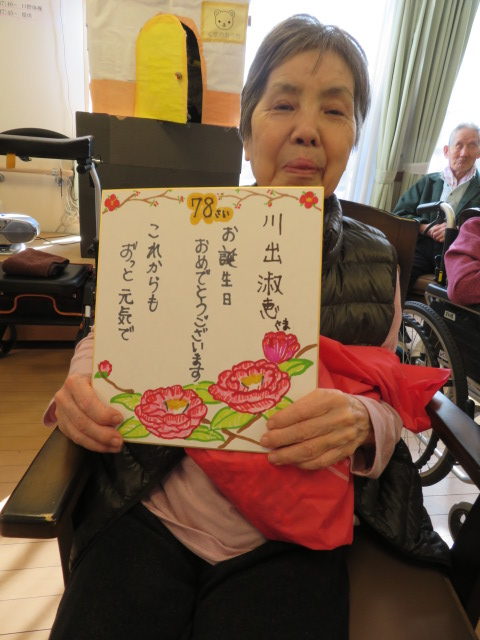 78さい
川出淑恵さま
お誕生日
おめでとうございます
これからも
ずっと元気で